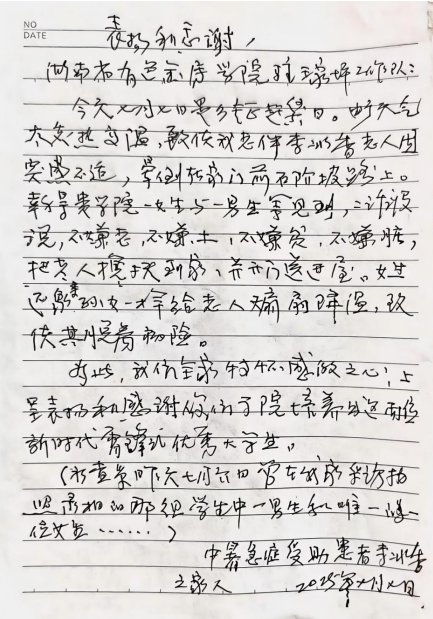 NO
DATE
表扬和感谢！
湖南省有色金属学院驻 工作队：
今天七月七日是 日。由于天气
太炎热高温，致使我老伴李冰香老人因
突感不适，晕倒在家门前石阶坡路上。
幸得贵学院一女生与一男生窜见到，二话没
说，不嫌老，不嫌土，不嫌贫，不嫌脏，
把老人搀扶到家，并 门送进屋。女生
还 的女一样给老人 扇降温，致
使其脱离 险。
为此，我们全家特怀感激之心，上
呈表扬和感谢你们学院培养出这两位
新时代雷锋式优秀大学生。
（ 昨天七月六日曾在我家采访拍
照录相的那组学生中一男生和唯一 一
位女生……）
中暑急症受助患者李冰香
之家人 2025年7月七日